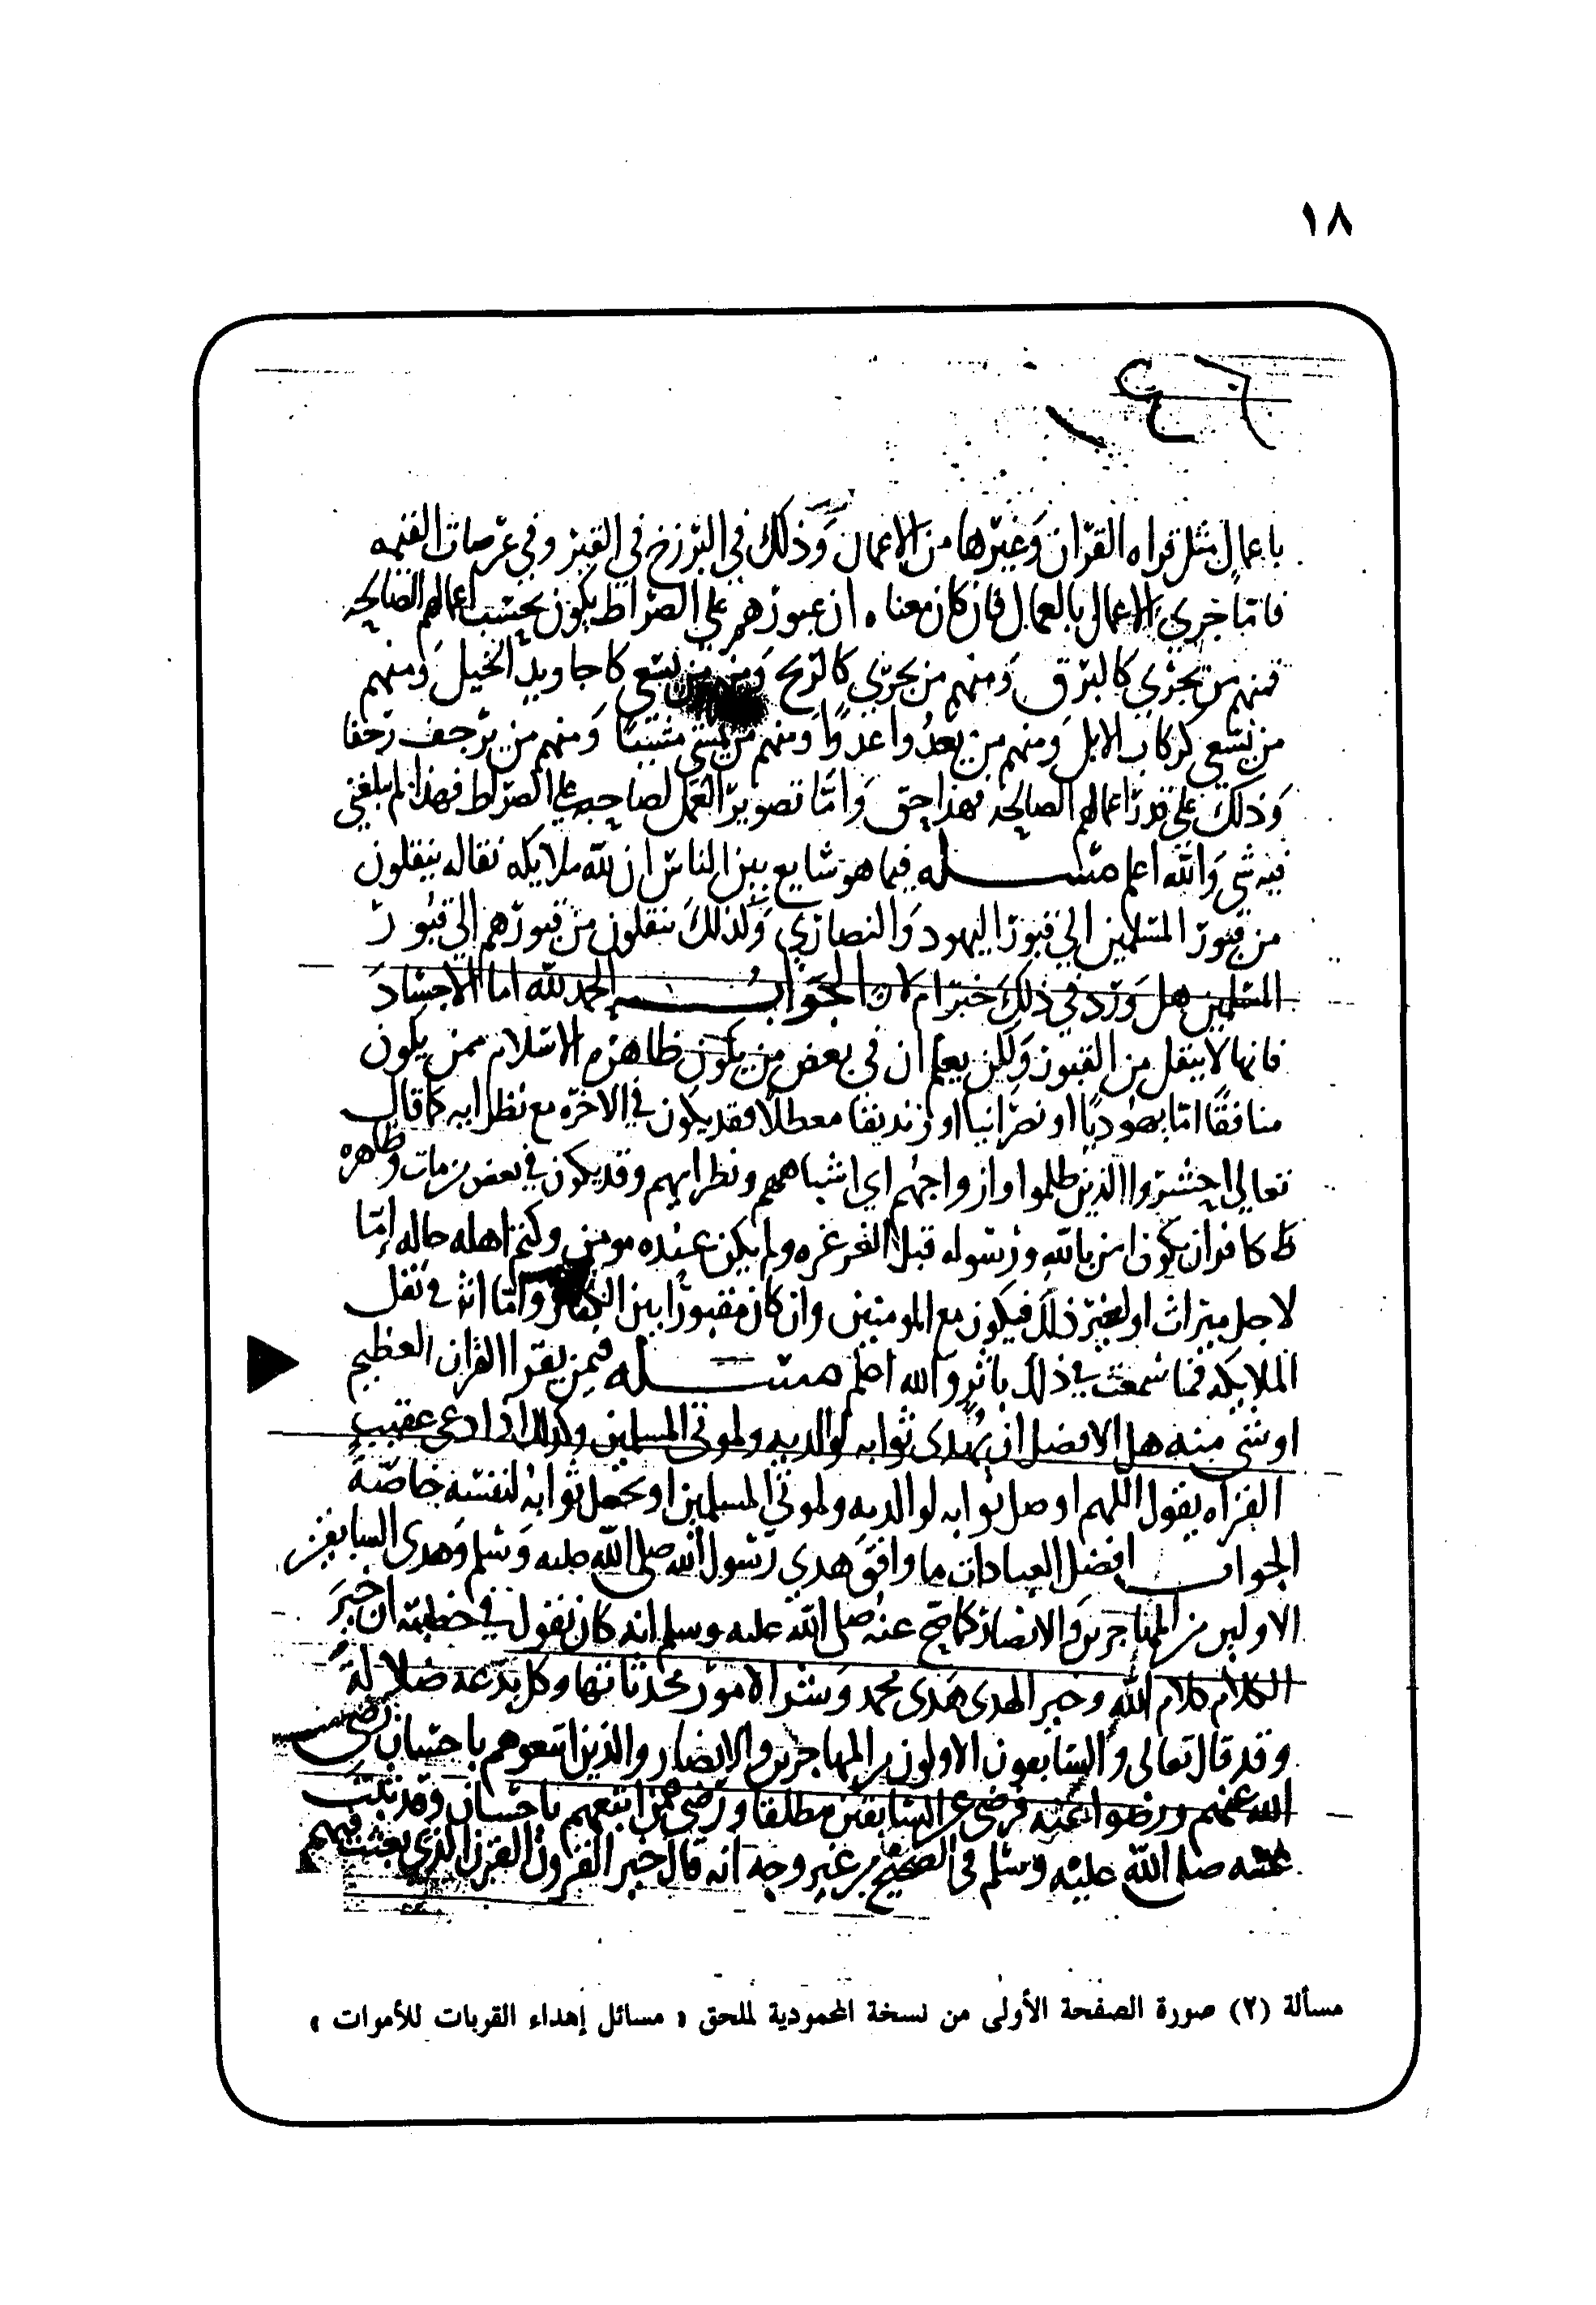 ١٨
باعمال مثل قراه القرآن وغيرها من الاعمال وذلك في البرزخ في القبر وفي عرصات القيمه
فاما جري الاعمال بالعمال فان كان معناه ان عبورهم علي الصراط يكون بحسب اعمالهم الصالحه
فمنهم من يجري كالبرق ومنهم من يجري كالريح ومنهم من يسعي كاجاويد الخيل ومنهم
من يسعي كركاب الابل ومنهم من يعدوا عدوا ومنهم من يمشي مشيا ومنهم من يزحف زحفا
وذلك علي قدر اعمالهم الصالحه فهذا حق واما تصوير العمل لصاحبه علي الصراط فهذا لم يبلغني
فيه شي والله اعلم مسله فيما هو شايع بين الناس ان لله ملايكه نقاله ينقلون
من قبور المسلمين الي قبور اليهود والنصاري وكذلك ينقلون من قبورهم الي قبور
المسلمين هل ورد في ذلك خبر ام لا الجواب الحمد لله اما الاجساد
فانها لا ينقل من القبور ولكن يعلم ان في بعض من يكون ظاهره الاسلام ممن يكون
منافقا اما يهوديا او نصرانيا او زنديقا معطلا فقد يكون في الاخره مع نظرايه كما قال
تعالي احشروا الذين ظلموا وازواجهم اي اشباههم ونظرايهم وقد يكون في بعض من مات وظاهره
كافرا ان يكون امن بالله ورسوله قبل الغرغره ولم يكن عنده مومن وكتم اهله حاله اما
لاجل ميراث او لغير ذلك فيكون مع المومنين وان كان مقبورا بين الكفار واما اثر في نقل
الملايكه فما سمعت في ذلك باثر والله اعلم مسله فيمن يقرا القران العظيم
او شي منه هل الافضل ان يهدى ثوابه لوالديه ولموتي المسلمين وكذلك اذا دعي عقيب
القراه يقول اللهم اوصل ثوابه لوالديه ولموتي المسلمين او يجعل ثوابه لنفسه خاصة
الجواب افضل العبادات ما وافق هدي رسول الله صلى الله عليه وسلم وهدى السابقين
الاولين من المهاجرين والانصار كما صح عنه صلى الله عليه وسلم انه كان يقول في خطبته ان خير
الكلام كلام الله وخير الهدى هدى محمد وشر الامور محدثاتها وكل بدعه ضلالة
وقد قال تعالى والسابقون الاولون من المهاجرين والانصار والذين اتبعوهم باحسان رضي
الله عنهم ورضوا عنه فرضي عن السابقين مطلقا ورضي عمن اتبعهم باحسان وقد ثبت
عنه صلى الله عليه وسلم في الصحيح من غير وجه انه قال خير القرون القرن الذي بعثت فيهم
مسألة (٢) صورة الصفحة الأولى من نسخة المحمودية لملحق « مسائل إهداء القربات للأموات »